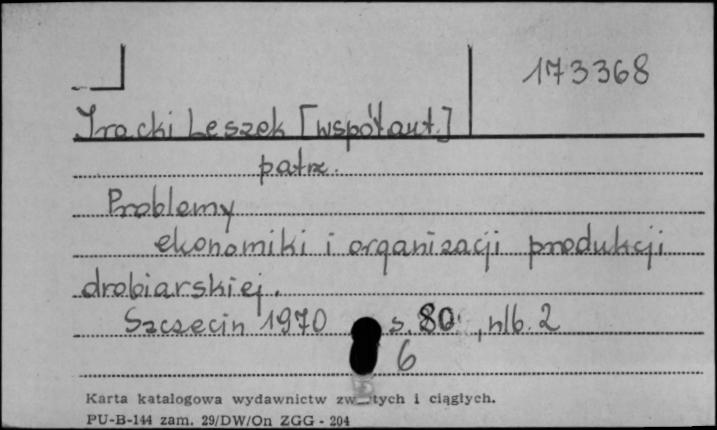 173368
Iracki Leszek [współaut.]
patrz.
Problemy
ekonomiki i organizacji produkcji
drobiarskiej.
Szczecin 1970 s. 80, nlb. 2
6
Karta katalogowa wydawnictw zw tych i ciągłych.
PU-B-144 zam. 29/DW/On ZGG - 204